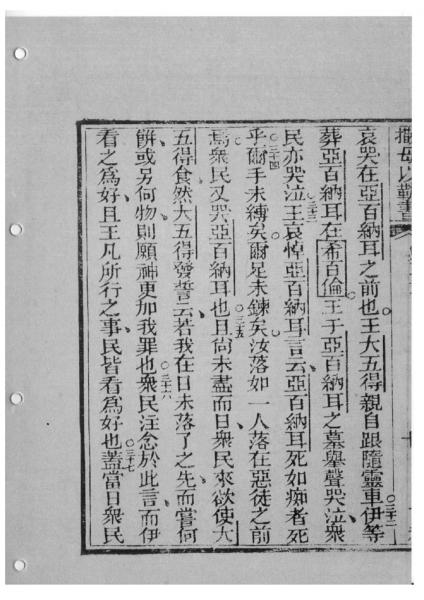 撒母以勒書
哀哭在亞百納耳之前也王大五得親自跟隨靈車○三十二伊等
葬亞百納耳在希百倫王于亞百納耳之墓舉聲哭泣眾
民亦哭泣○三十三王哀悼亞百納耳言云亞百納耳死如痴者死
乎○三十四爾手未縛矣爾足未鍊矣汝落如一人落在惡徒之前
焉眾民又哭亞百納耳也○三十五且尚未盡而日眾民來欲使大
五得食然大五得發誓云若我在日未落了之先而嘗何
餅或另何物則願神更加我罪也○三十六眾民注念於此言而伊
看之為好且王凡所行之事民皆看為好也○三十七蓋當日眾民